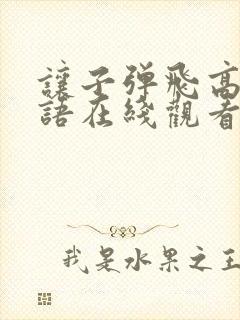 讓子彈飛高
語在綫觀看
我是水果之王